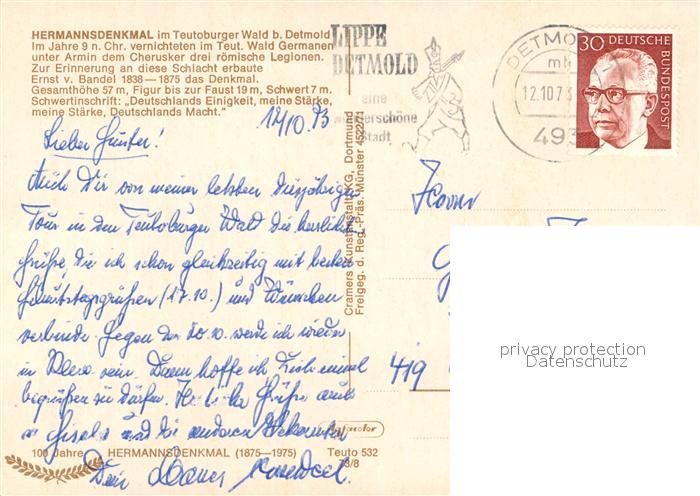 HERMANNSDENKMAL im Teutoburger Wald b. Detmold
Im Jahre 9 n. Chr. vernichteten im Teut. Wald Germanen
unter Armin dem Cherusker drei römische Legionen.
Zur Erinnerung an diese Schlacht erbaute
Ernst v. Bandel 1838–1875 das Denkmal.
Gesamthöhe 57 m, Figur bis zur Faust 19 m, Schwert 7 m.
Schwertinschrift: „Deutschlands Einigkeit, meine Stärke,
meine Stärke, Deutschlands Macht."
LIPPE
DETMOLD
eine
wunderschöne
Stadt
DETMOLD
mh
12.10.73
493
30 DEUTSCHE
BUNDESPOST
12/10.73
Lieber Günter!
Auch Dir von meiner letzten diesjährigen
Tour in den Teutoburger Wald die herzlichsten
Grüße, die ich schon gleichzeitig mit besten
Geburtstagsgrüßen (17.10.) und Wünschen
verbinde. Gegen den 20.10. werde ich wieder
in Kleve sein. Dann hoffe ich Dich einmal
begrüßen zu dürfen. Herzliche Grüße auch
an Gisela und die anderen Bekannten
Dein
Herrn
419
Cramers Kunstanstalt KG, Dortmund
Freigeg. d. Reg.-Präs. Münster 4522/71
100 Jahre HERMANNSDENKMAL (1875–1975) Teuto 532
73/8
privacy protection
Datenschutz